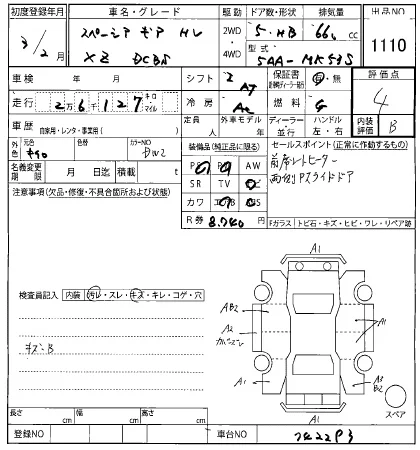 初度登録年月 車名・グレード 駆動 ドア数・形状 排気量 出品NO
3/2月 スペーシア ギア HV 2WD・4WD 5・HB 660cc 1110
XZ DCBS 型式 5AA-MK53S
車検 年 月 シフト AT 保証書 有・無 評価点
走行 2万6千127キロ・マイル 冷房 AC 燃料 G 4
車歴 自家用・レンタ・事業用( ) 定員 人 外車モデル 年 ディーラー・並行 ハンドル 左・右 内装評価 B
外色 元色 色替 カラーNO DW2 装備品(純正品に限る) セールスポイント(正常に作動するもの)
名義変更期限 月 日迄 積載 t PS PW AW 前席シートヒーター
注意事項(欠品・修復・不具合箇所および状態) SR TV ナビ 両側Pスライドドア
カワ エアB
R券 8,740円 Fガラス トビ石・キズ・ヒビ・ワレ・リペア跡
A1
検査員記入 内装 汚レ・スレ・キズ・キレ・コゲ・穴
AB2
A2 A1
キズ・B
A1 A3
B2
スペア
A1
長さ cm 幅 cm 高さ cm
登録NO 車台NO